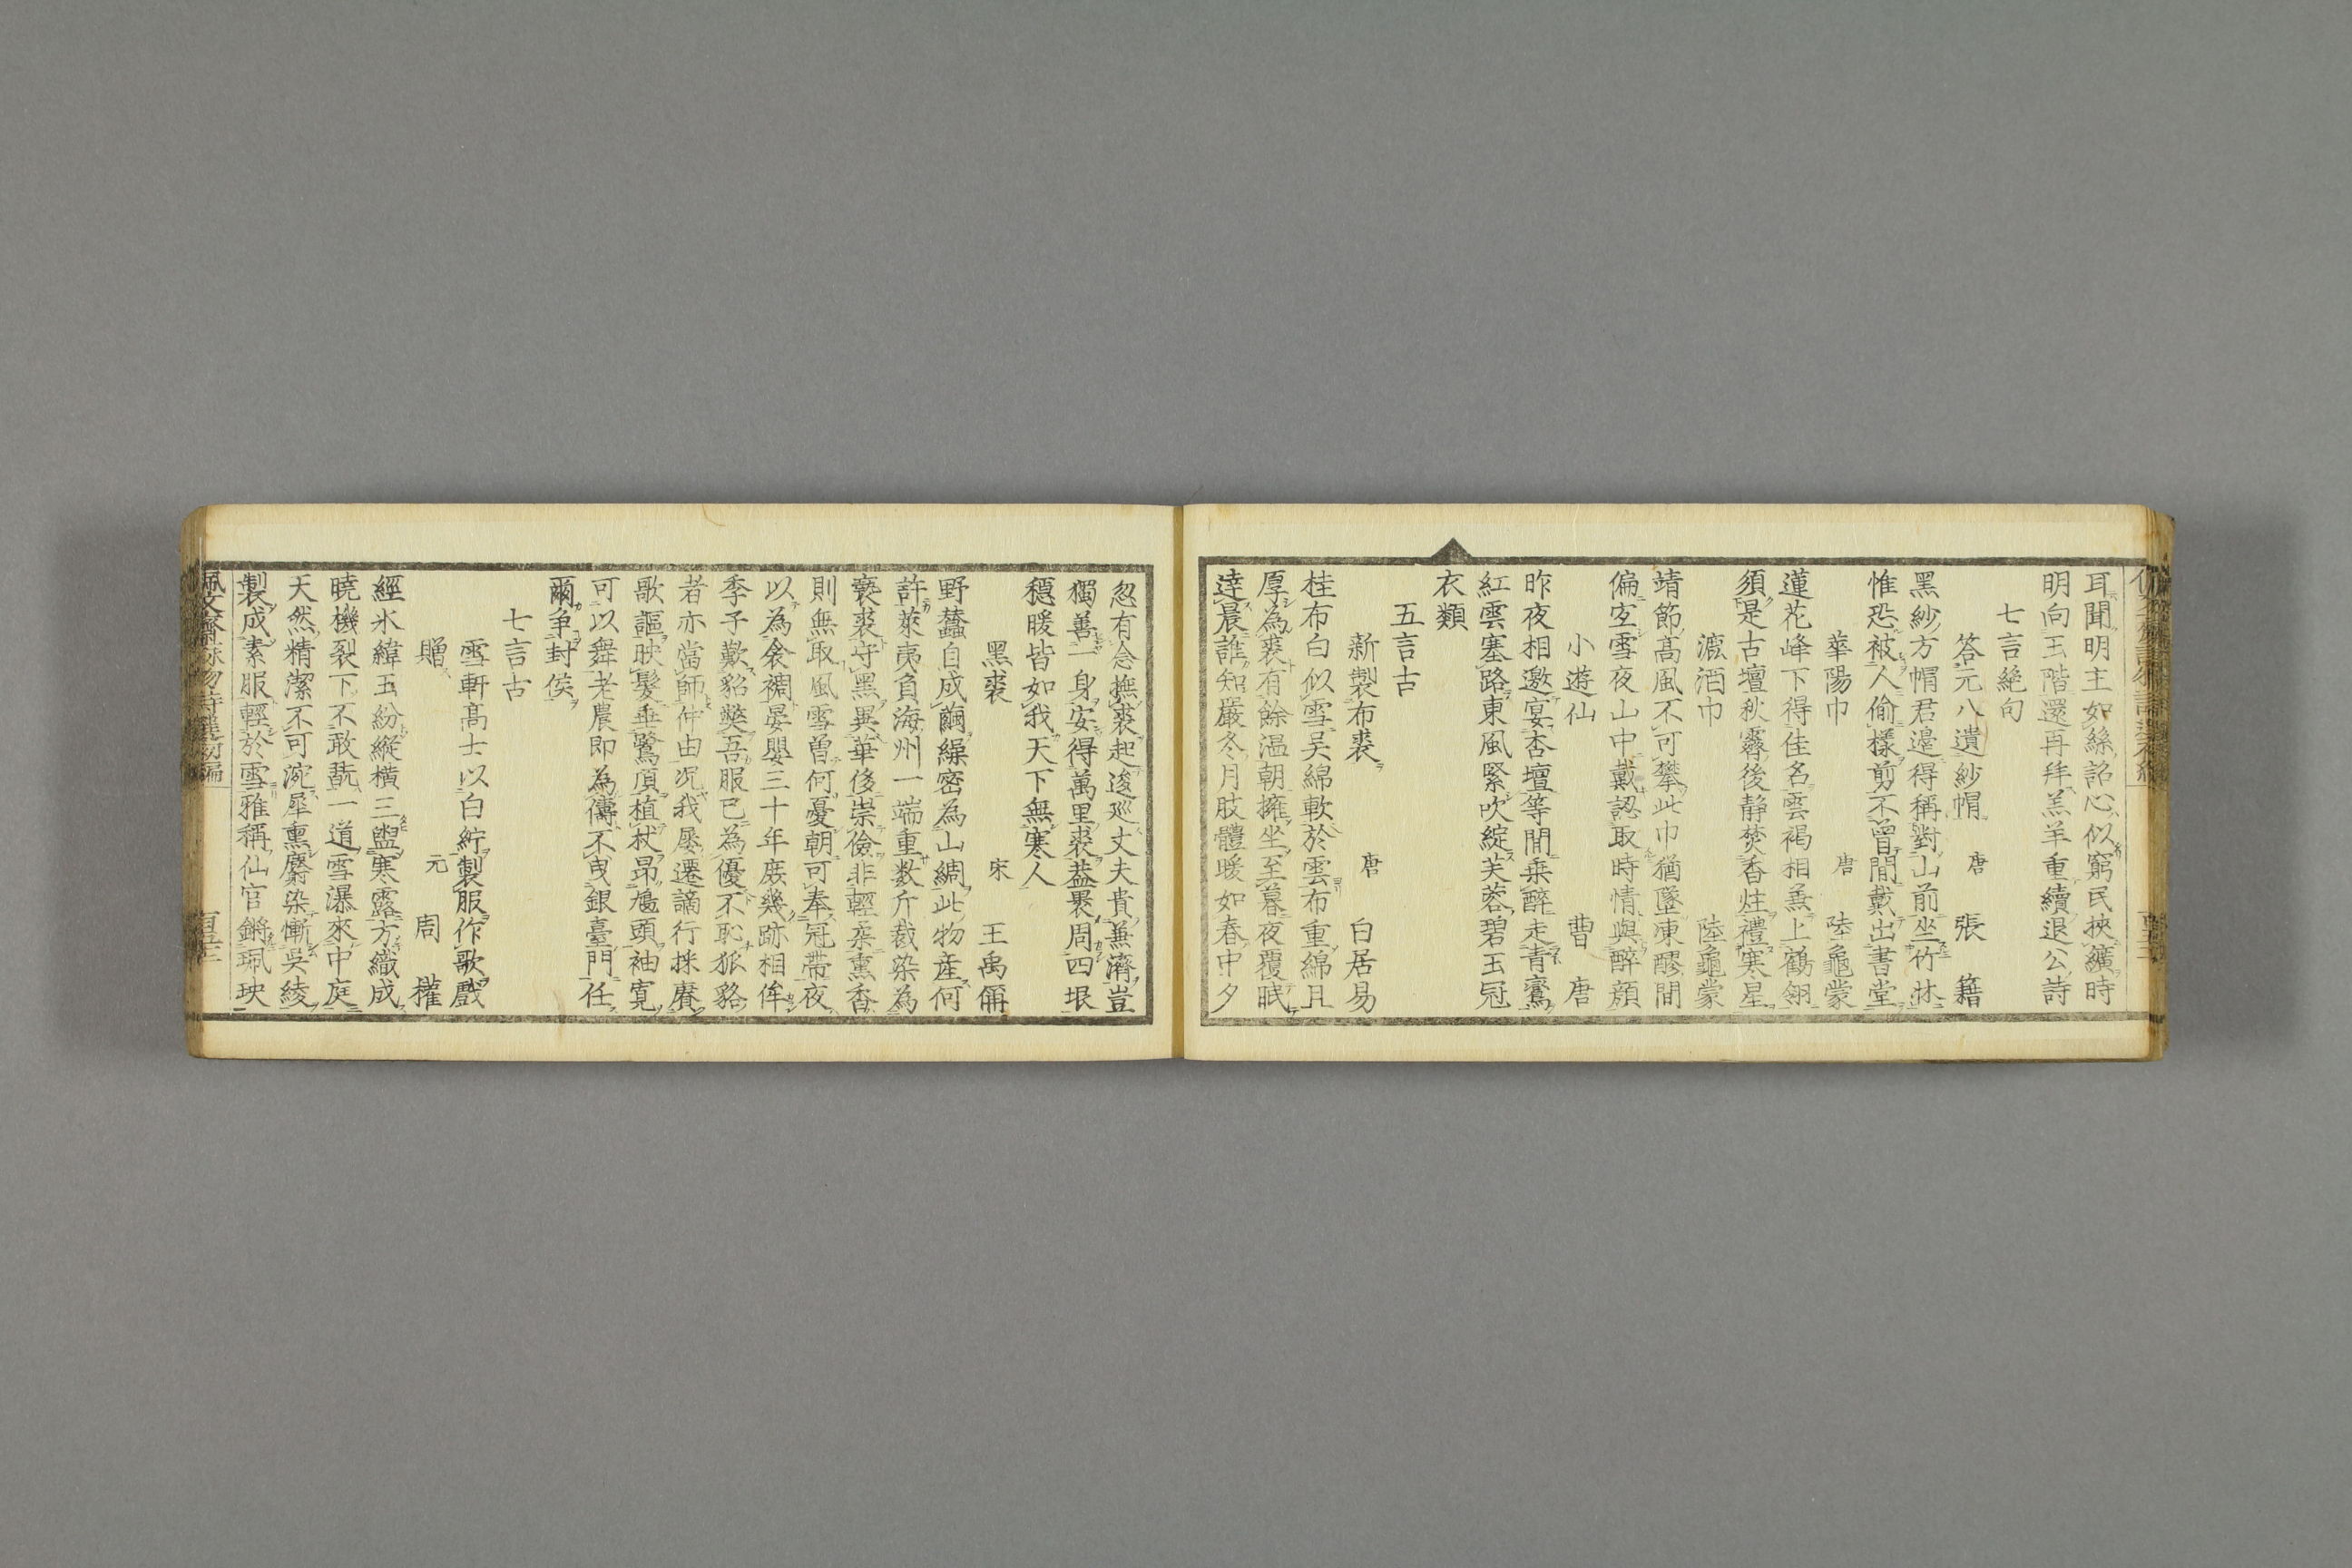 耳聞明主如絲詔心似窮民挾纊時
明向玉階還再拜羔羊重續退公詩
七言絶句
答元八遺紗帽 唐 張 籍
黑紗方帽君邊得稱對山前坐竹牀
惟恐被人偷樣剪不曾閒戴出書堂
華陽巾 唐 陸龜蒙
蓮花峰下得佳名雲褐相兼上鶴翎
須是古壇秋霽後静焚香炷禮寒星
漉酒巾 陸龜蒙
靖節高風不可攀此巾猶墜凍醪間
偏宐雪夜山中戴認取時情與醉顔
小遊仙 曹 唐
昨夜相邀宴杏壇等閒乗醉走青鸞
紅雲塞路東風緊吹綻芙蓉碧玉冠
衣類
五言古
新製布裘 唐 白居易
桂布白似雪吴綿軟於雲布重綿且
厚為裘有餘温朝擁坐至暮夜覆眠
達晨誰知嚴冬月肢體暖如春中夕
忽有念撫裘起逡巡丈夫貴兼濟豈
獨善一身安得萬里裘葢裹周四垠
穩暖皆如我天下無寒人
黑裘 宋 王禹偁
野蠶自成繭繰密為山綢此物産何
許萊夷負海州一端重数斤裁染為
䙝裘守黑異華侈崇儉非輕柔熏香
則無取風雪曽何憂朝可奉冠帶夜
以為衾裯晏嬰三十年庶幾跡相侔
季子歎貂獘吾服已為優不恥狐貉
者亦當師仲由况我屡遷謫行採𪋻
歌謳映髮垂鷺頂植杖昂鳩頭袖寛
可以舞老農即為儔不曳銀臺門任
爾争封侯
七言古
雪軒高士以白紵製服作歌戲
贈 元 周 權
經氷緯玉紛縱橫三盥寒露方織成
曉機裂下不敢觀一道雪瀑來中庭
天然精潔不可涴犀熏麝染慚吳綾
製成素服輕於雪雅稱仙官鏘珮玦
佩文齋詠物詩選初編